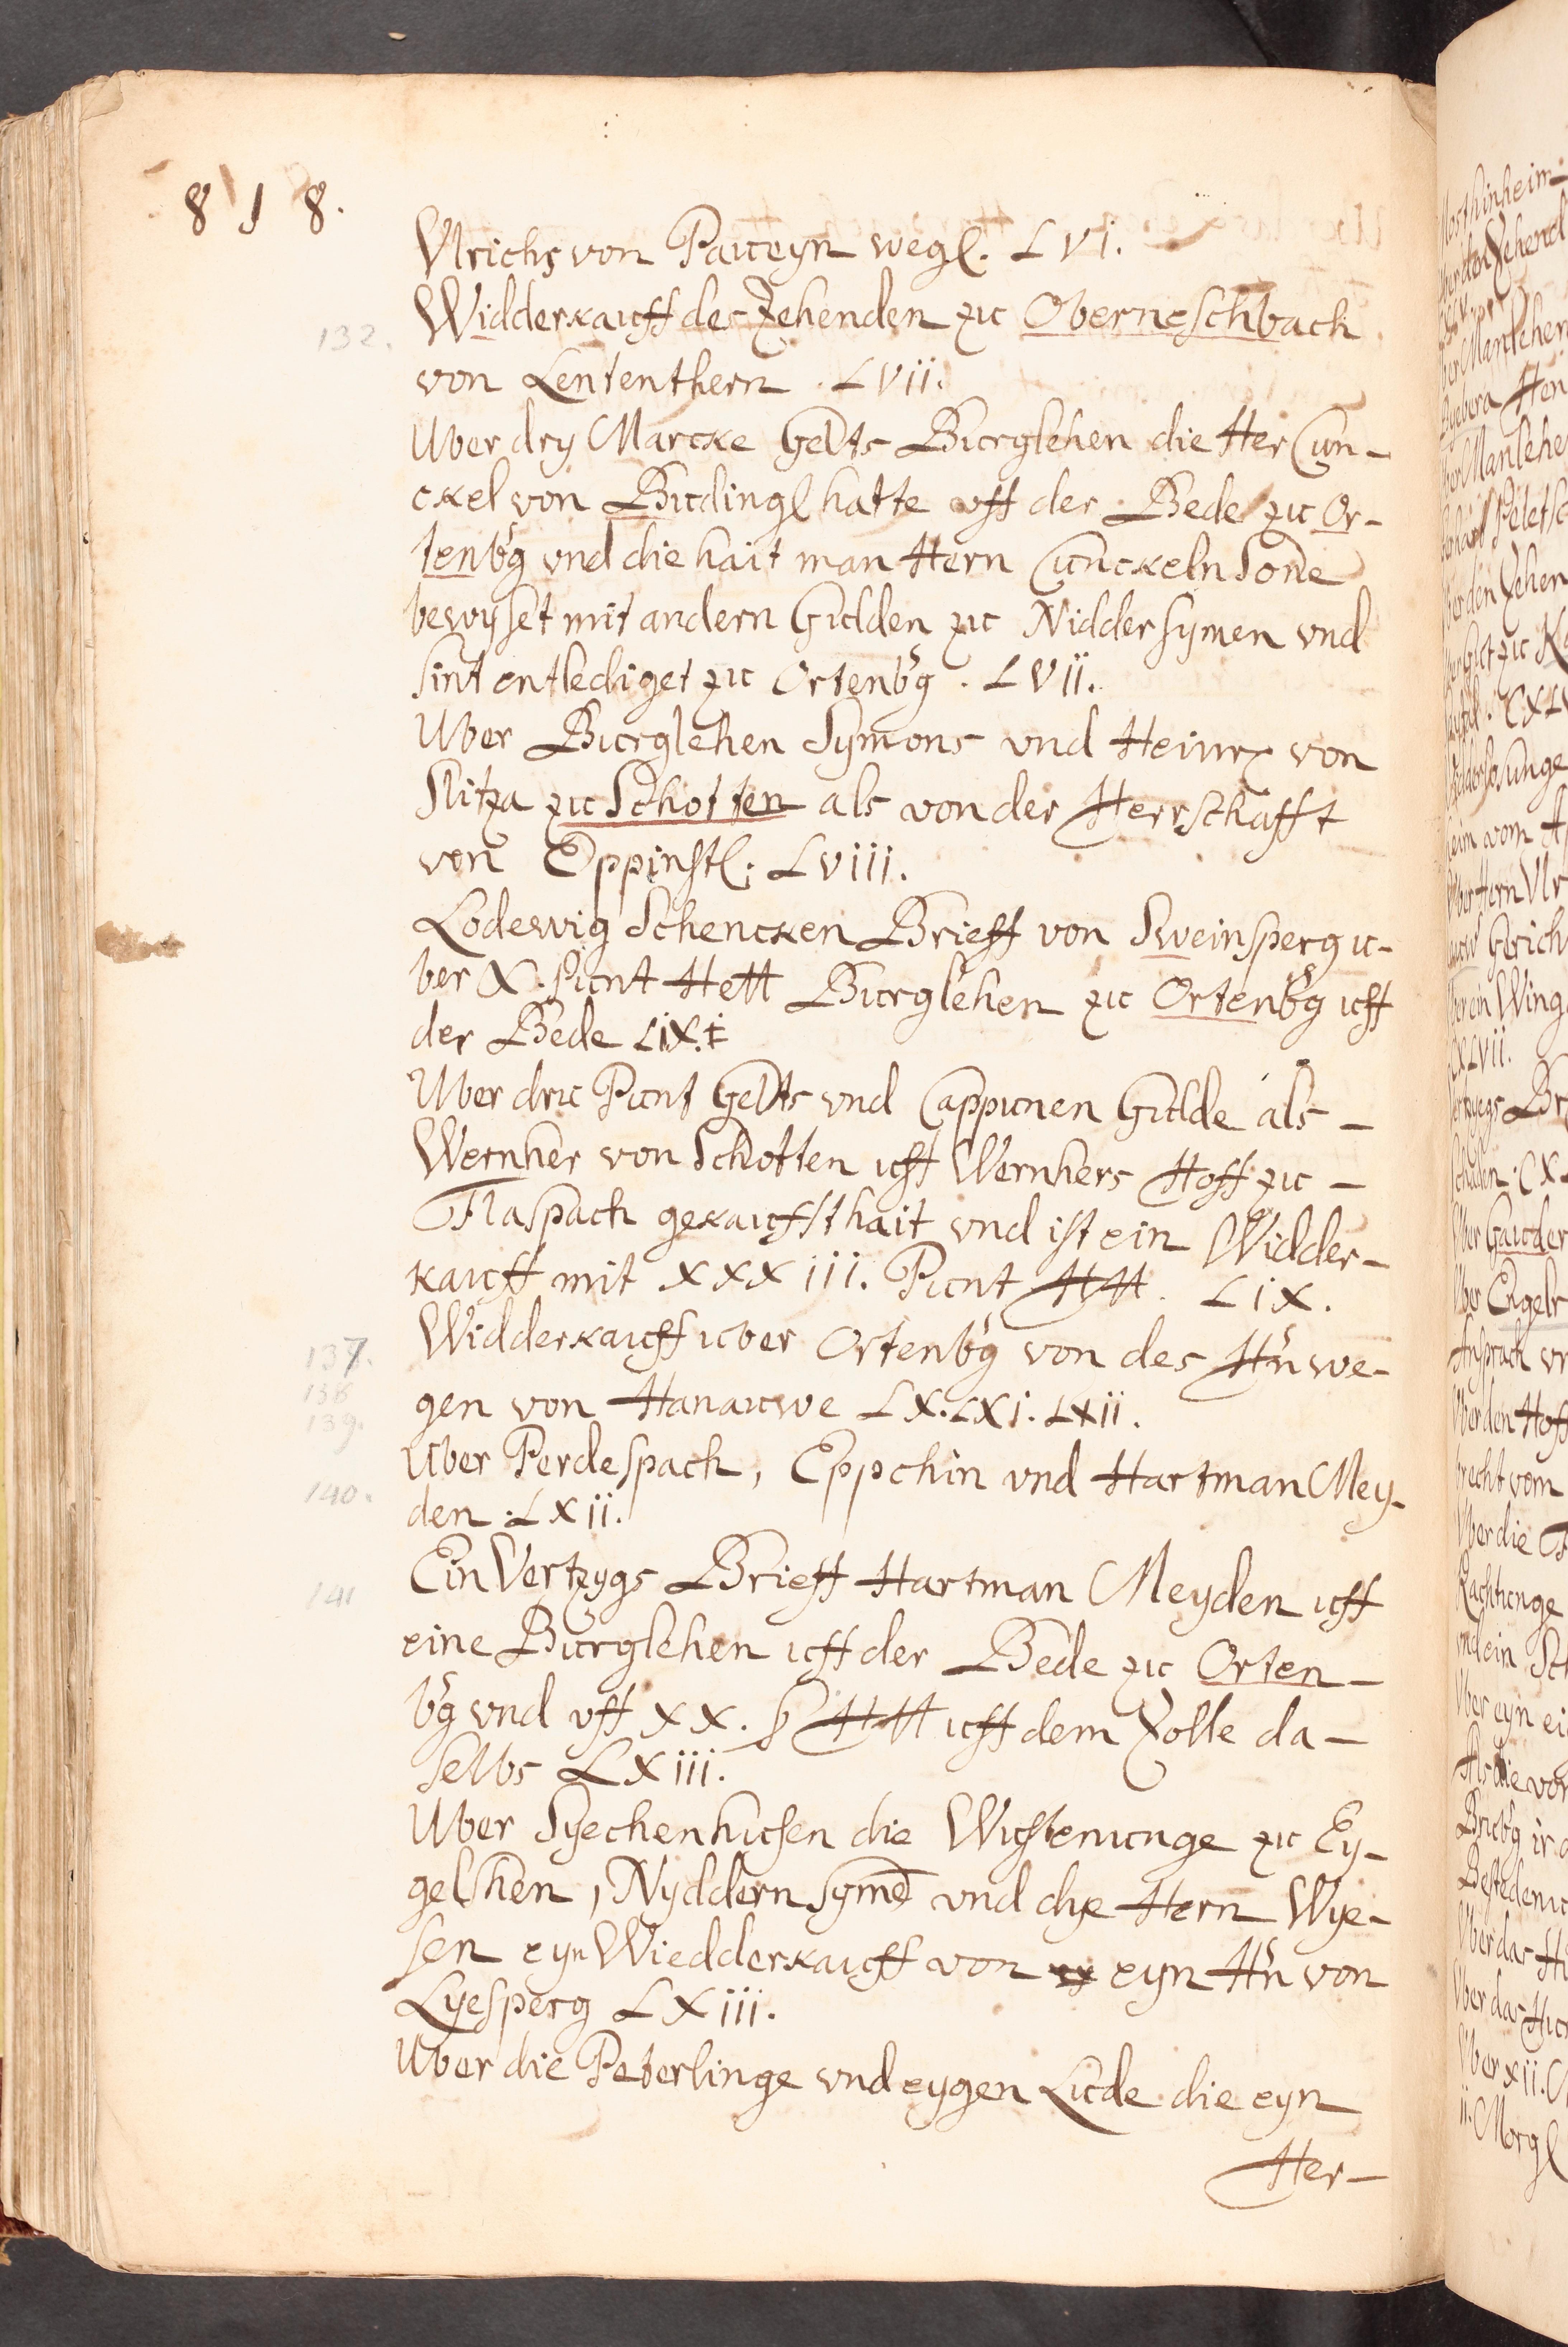 818.
Vlrichs von Paueyn wegl. LVi.
132. Widderkauff des Zehenden zu Oberneschbach
von Lententhern. LVii.
Uber dry Marcke Gelts Burglehen die Her Cun-
ckel von Budingl hatte vff der Bede zu Or-
tenbg vnd die hait man Hern Cunckeln Sone
bewyset mit andern Gulden zu Niddersymen vnd
sint entlediget zu Ortenbg. LVii.
Uber Burglehen Symons vnd Heinr von
Slitza zu Schotten als von der Herrschafft
von Eppinstl. LViii.
Lodewig Schencken Brieff von Sweinsperg u-
ber X. Punt Hell Burglehen zu Ortenbg uff
der Bede LiX.
Uber dru Punt Gelts vnd Cappunen Gulde als -
Wernher von Schotten uff Wernhers Hoff zu -
Flaspach gekaufft hait vnd ist ein Widder-
kauff mit XXXiii. Punt Hll. LiX.
137. Widderkauff uber Ortenbg von des Hn we-
138
139. gen von Hanauwe LX. LXi. LXii.
Uber Perdespach, Eppchin vnd Hartman Mey-
140. den. LXii.
141 Ein Vertzygs Brieff Hartman Meyden uff
eine Burglehen uff der Bede zu Orten-
bg vnd vff XX. ß Hll uff dem Zolle da-
selbs LXiii.
Uber Syechenhusen die Wustenunge zu Ey-
gelshen, Nyddernsyme vnd dye Hern Wye-
sen eyn Wiedderkauff von eyn Hn von
Lyesperg LXiii.
Uber die Peterlinge vnd eygen Lude die eyn
Her-